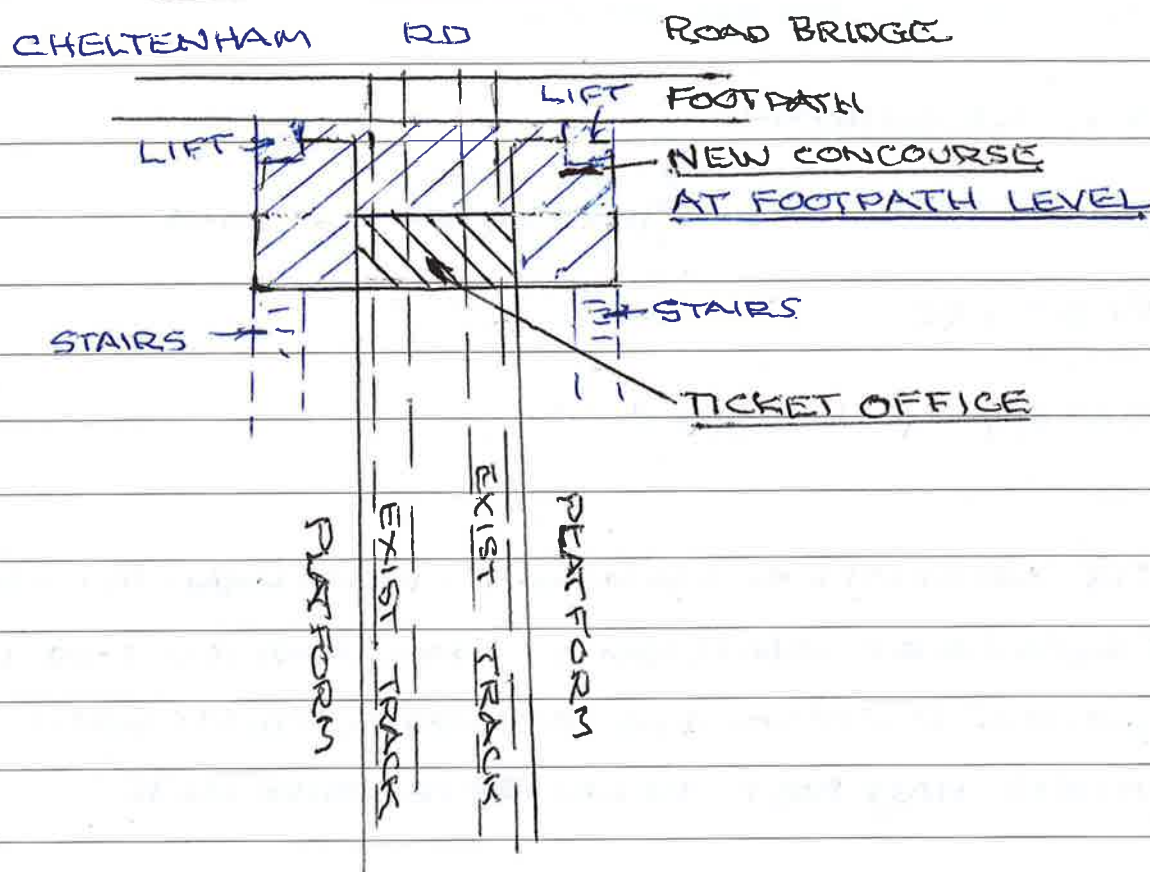 CHELTENHAM RD ROAD BRIDGE
LIFT FOOTPATH
LIFT NEW CONCOURSE
AT FOOTPATH LEVEL
STAIRS
STAIRS
TICKET OFFICE
PLATFORM
EXIST. TRACK
EXIST TRACK
PLATFORM